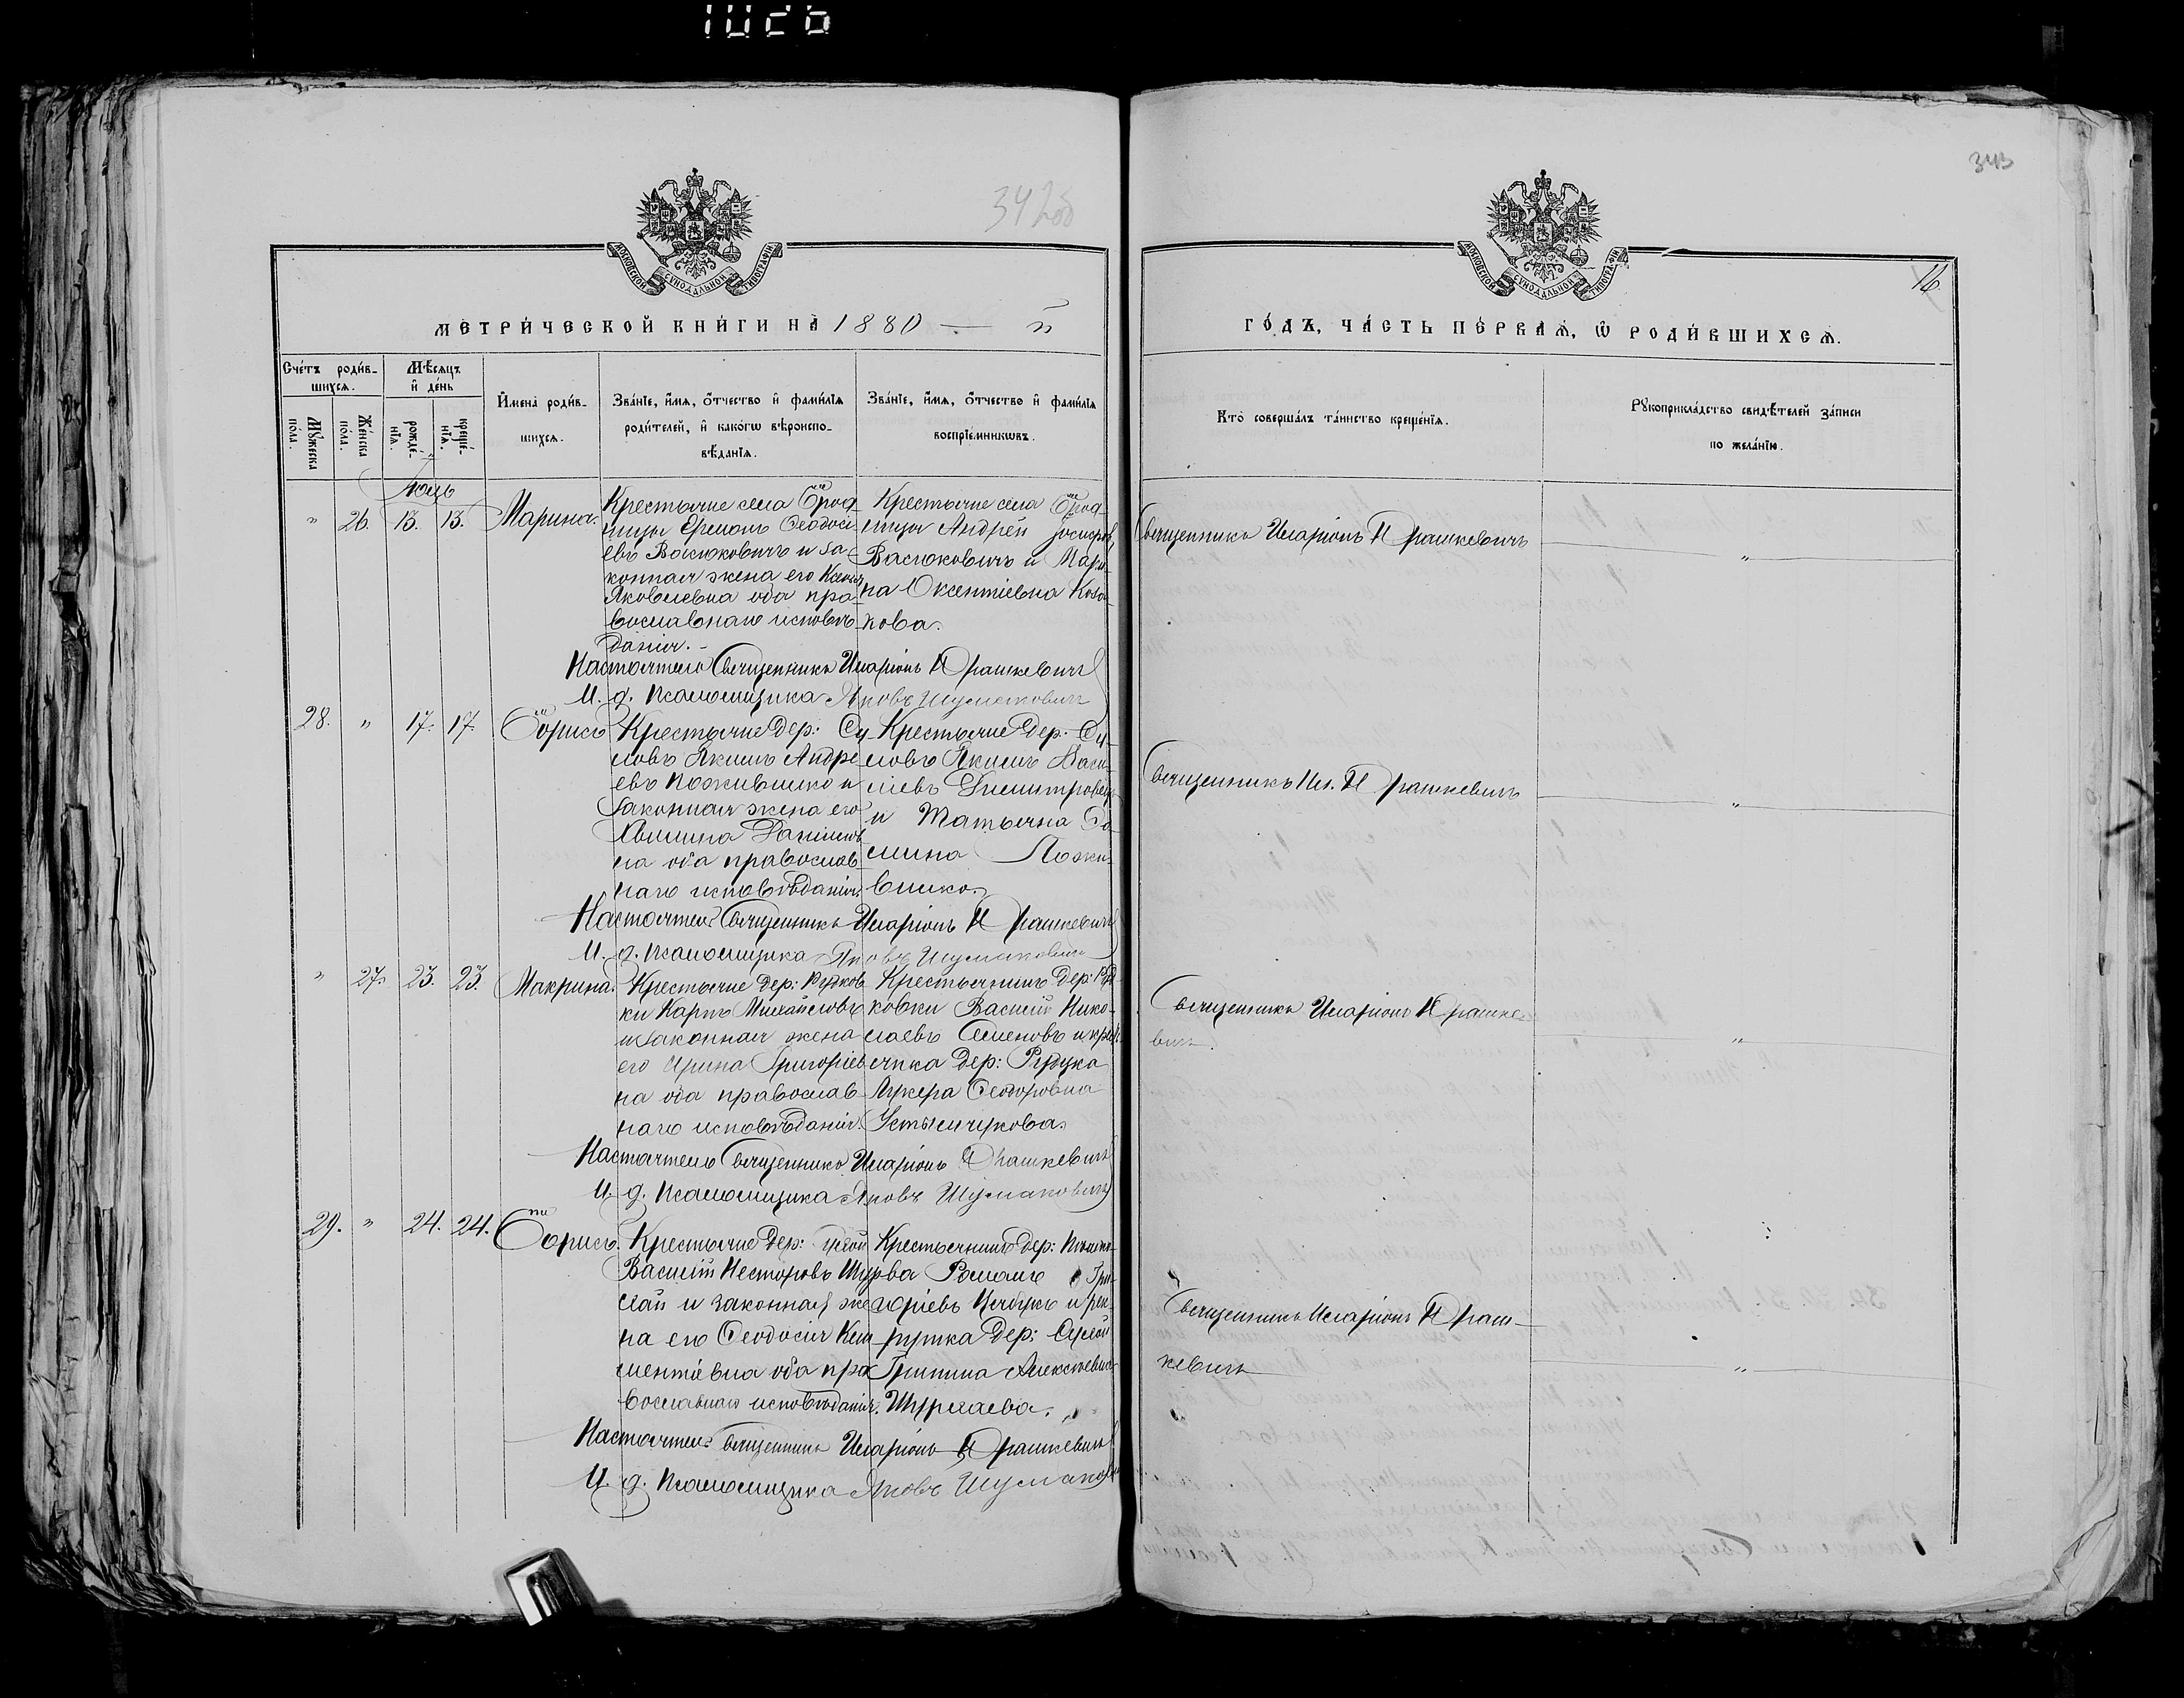 342об
343
16.
МОСКОВСКОЙ СѴНОДАЛЬНОЙ ТИПОГРАФІИ
МОСКОВСКОЙ СѴНОДАЛЬНОЙ ТИПОГРАФІИ
МЕТРИ́ЧЕСКОЙ КНИ́ГИ НА 1880 — й
ГО́ДЪ, ЧА́СТЬ ПЕ́РВАѦ, Ѿ РОДИ́ВШИХСѦ.
Сче́тъ роди́в-
шихсѧ.
Мꙋ́жеска по́ла.
Же́нска по́ла.
Мѣ́сяцъ и҆ де́нь
рожде́-нїѧ.
креще́-нїѧ.
И҆мена̀ роди́в-
шихсѧ.
Зва́нїе, и҆́мѧ, ѻ҆́тчество и҆ фами́лїѧ
роди́телей, и҆ како́гѡ вѣроиспо-
вѣ́данїѧ.
Зва́нїе, и҆́мѧ, ѻ҆́тчество и҆ фами́лїѧ
воспрїе́мникѡвъ.
Кто̀ соверша́лъ та́инство креще́нїѧ.
Рꙋкоприкла́дство свидѣ́телей за́писи
по жела́нїю.
" 26. 13. 13. Марина.
Крестьяне села Брод-
ницы Ермолъ Ѳеодосі-
евъ Васюковичъ и за-
конная жена его Ксенія
Яковлевна оба пра-
вославнаго исповѣ-
данія.
Крестьяне села Брод-
ницы Андрей
Васюковичъ и Мари-
на Оксентіевна Коза-
кова.
Священникъ Иларіонъ Прашкевичъ
"
Настоятель Священникъ Иларіонъ Прашкевичъ
И. д. Псаломщика Яковъ Шумаковичъ
28. " 17. 17. Борисъ
Крестьяне Дер: Су-
ловъ Якимъ Андре
евъ Поживилко и
законная жена его
Данилов
на оба православ
наго исповѣданія.
Крестьяне Дер: Су-
ловъ Якимъ Васи-
ліевъ Димитровецъ
и Татьяна Го-
мина Пожи-
вилко.
Священникъ Ил. Прашкевичъ
"
Настоятель Священникъ Иларіонъ Прашкевичъ
И. д. Псаломщика Яковъ Шумаковичъ
" 27. 23. 23. Макрина.
Крестьяне Дер: Рудков
ки Карпъ Михайловъ
и законная жена
его Ирина Григоріев
на оба православ
наго исповѣданія.
Крестьянинъ Дер: Руд-
ковки Василій Нико-
лаевъ Семеновъ и крест
янка Дер:
Ѳеодоровна
Устымчукова.
Священникъ Иларіонъ Прашке-
вичъ.
"
Настоятель Священникъ Иларіонъ Прашкевичъ
И. д. Псаломщика Яковъ Шумаковичъ
29. " 24. 24. Борисъ.
Крестьяне Дер:
Василій Несторовъ Шур
лай и законная же
на его Ѳеодосія Кли
ментіевна оба пра
вославнаго исповѣданія.
Крестьянинъ Дер:
Романъ Гри-
горіевъ и рек-
рутка Дер:
Гриппина Алексѣевна
Шурлаева.
Священникъ Иларіонъ Праш-
кевичъ
"
Настоятель Священникъ Иларіонъ Прашкевичъ
И. д. Псаломщика Яковъ Шумакович